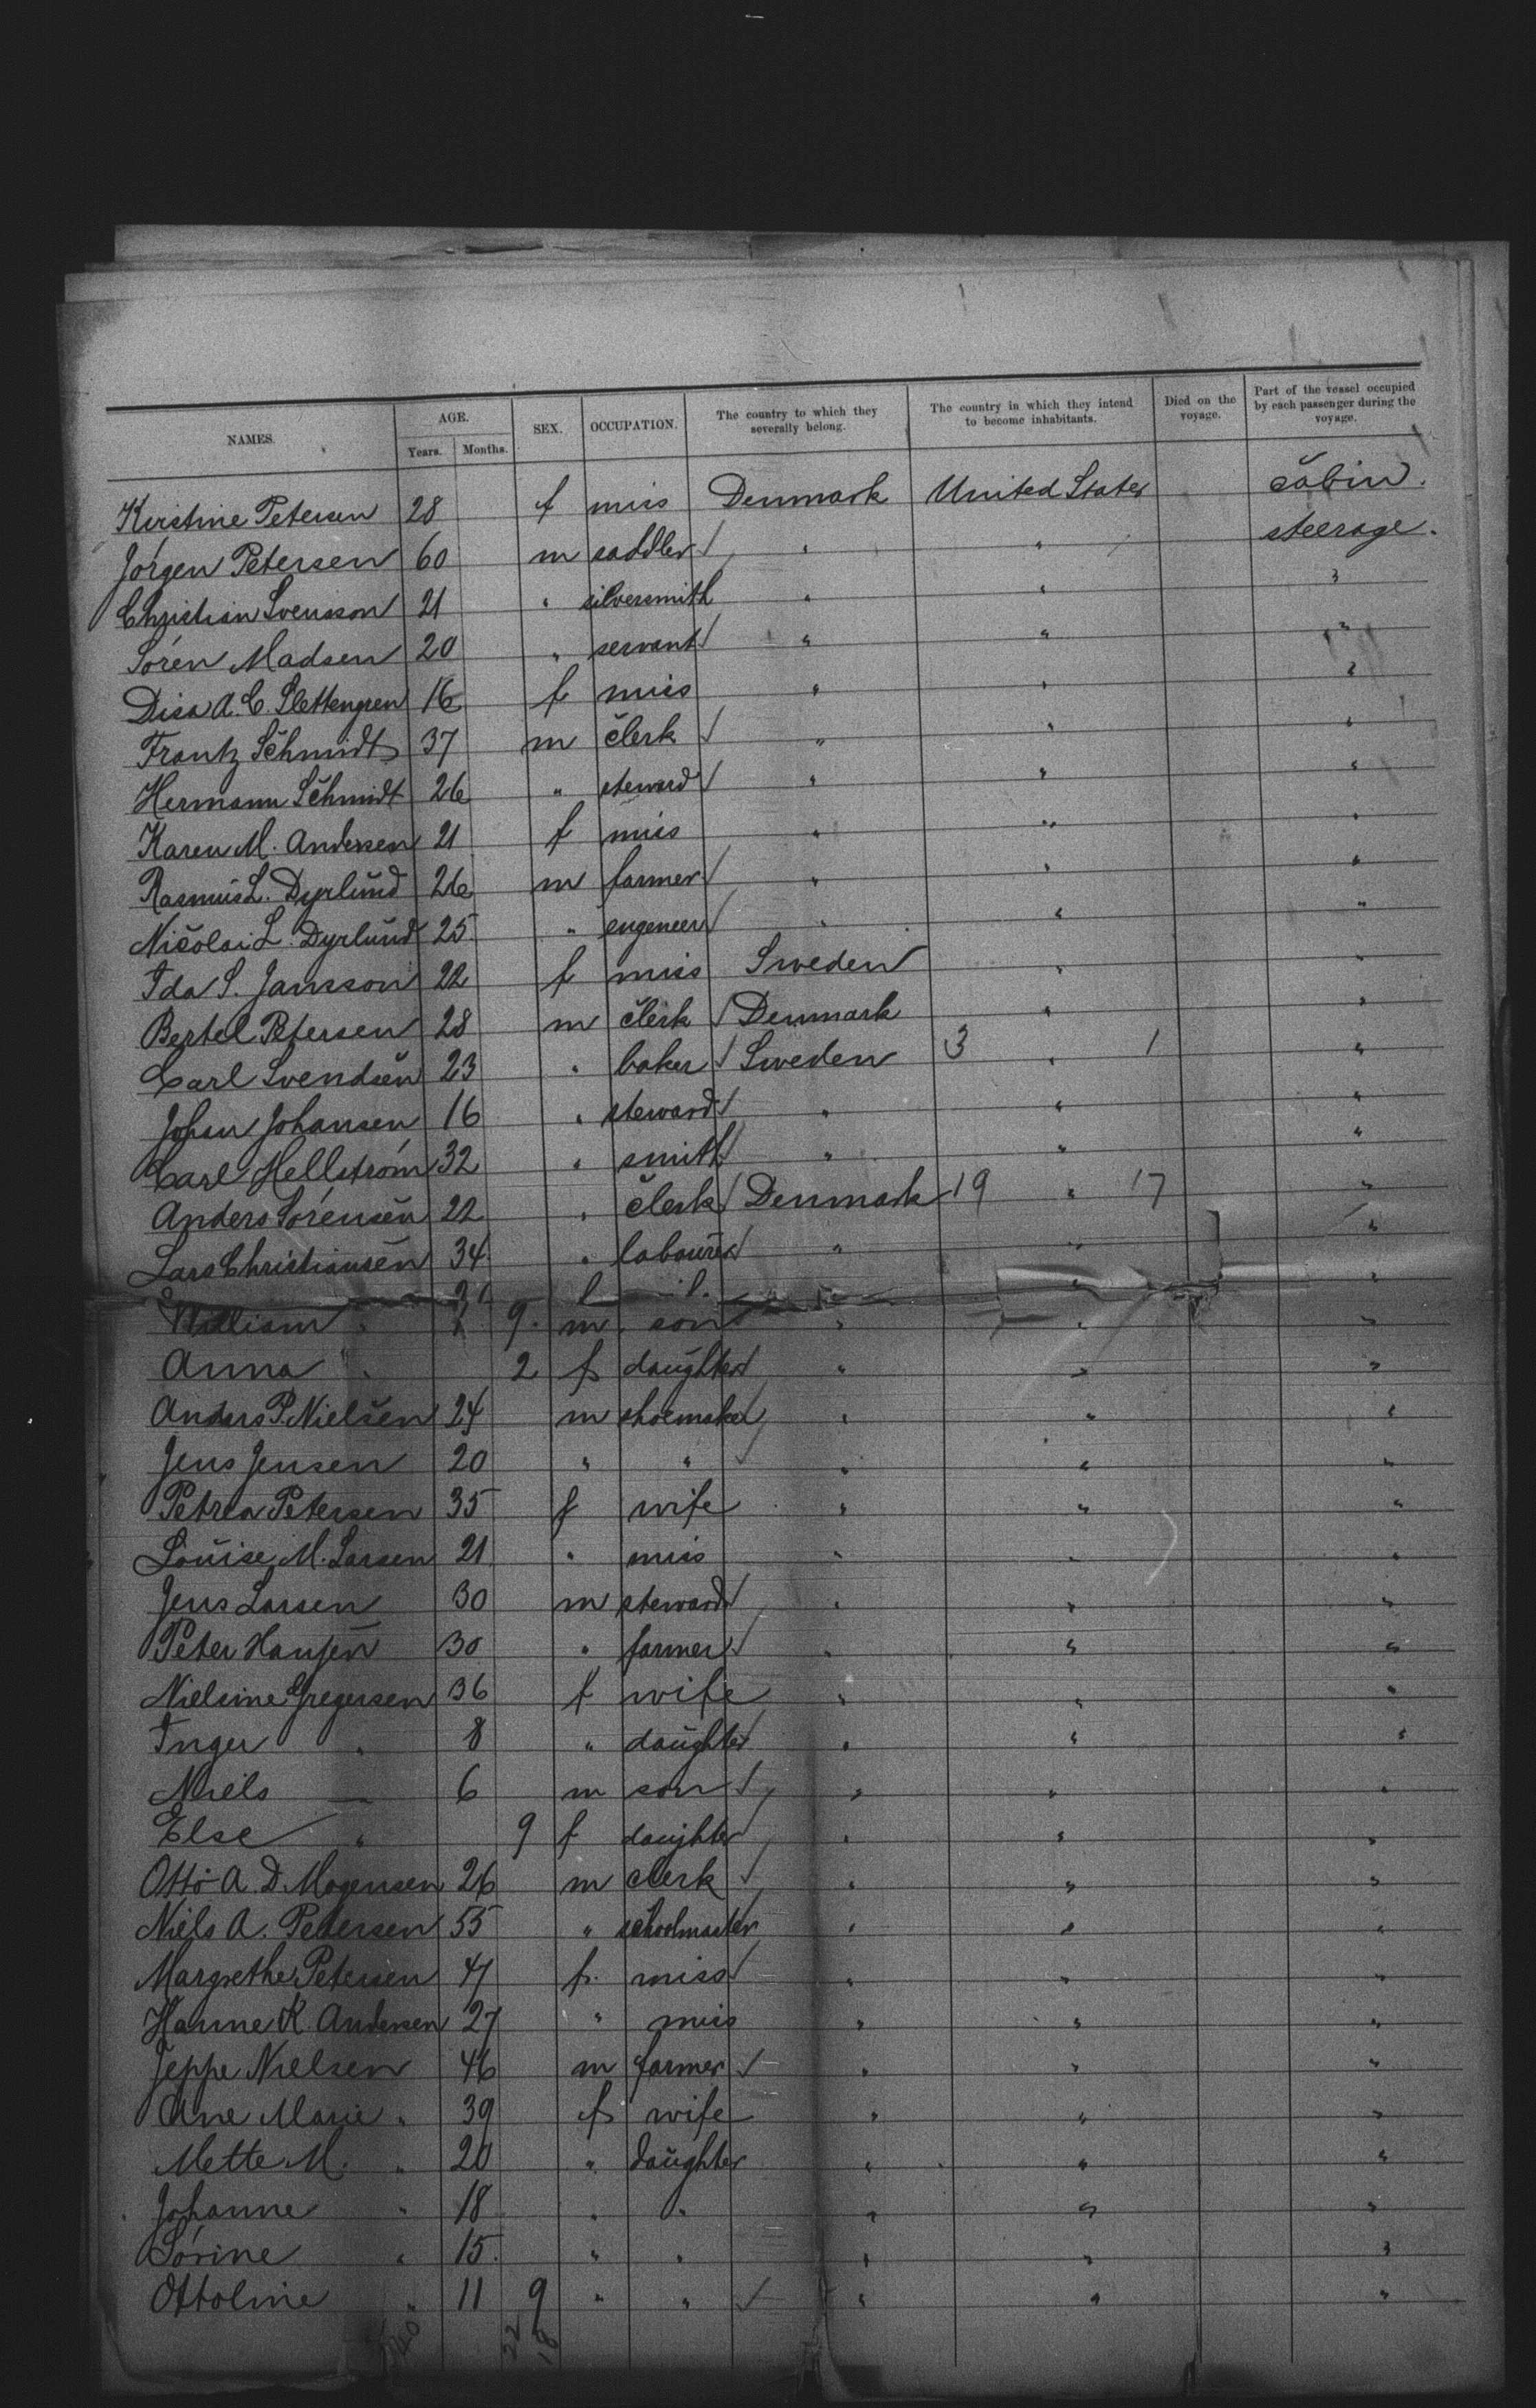 NAMES. AGE. Years. Months. SEX. OCCUPATION. The country to which they severally belong. The country in which they intend to become inhabitants. Died on the voyage. Part of the vessel occupied by each passenger during the voyage.
Kirstine Petersen 28 f miss Denmark United States cabin.
Jörgen Petersen 60 m saddler " " steerage.
Christian Svensson 21 " silversmith " " "
Sören Madsen 20 " servant " " "
Disa A. C. Slettengren 16 f miss " " "
Frantz Schmidt 37 m clerk " " "
Hermann Schmidt 26 " steward " " "
Karen M. Andersen 21 f miss " " "
Rasmus L. Dyrlund 26 m farmer " " "
Nicolai L. Dyrlund 25 " engeneer " " "
Ida S. Jansson 22 f miss Sweden " "
Bertel Petersen 28 m clerk Denmark " "
Carl Svendsen 23 " baker Sweden 3 " 1 "
Johan Johansen 16 " steward " " "
Carl Hellström 32 " smith " " "
Anders Sörensen 22 " clerk Denmark 19 " 17 "
Lars Christiansen 34 " labourer " " "
William " 9 m son " " "
Anna " 2 f daughter " " "
Anders P. Nielsen 24 m shoemaker " " "
Jens Jensen 20 " " " " "
Petrea Petersen 35 f wife " " "
Louise M. Larsen 21 " miss " " "
Jens Larsen 30 m steward " " "
Peter Hansen 30 " farmer " " "
Nielsine Gregersen 36 f wife " " "
Inger " 8 " daughter " " "
Niels — 6 m son " " "
Else " 9 f daughter " " "
Otto A. D. Mogensen 26 m clerk " " "
Niels A. Petersen 55 " schoolmaster " " "
Margrethe Petersen f. miss " " "
Hanne K. Andersen 27 " miss " " "
Jeppe Nielsen 46 m farmer " " "
Ane Marie " 39 f wife " " "
Mette M. " 20 " daughter " " "
Johanne " 18 " " " " "
Sörine " 15 " " " " "
Ottoline " 11 9 " " " " "
22 18